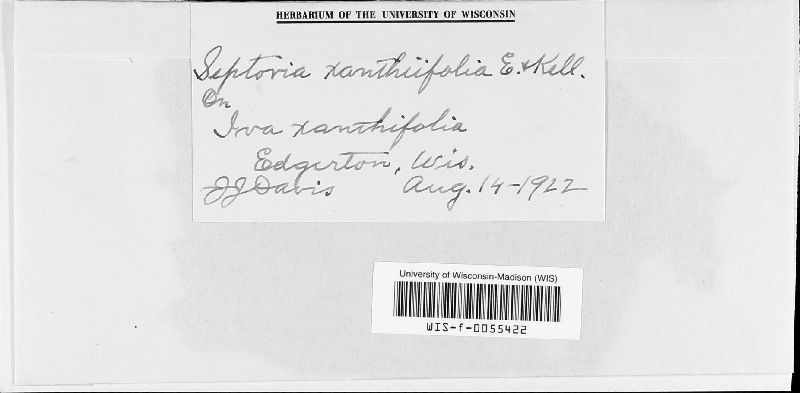 HERBARIUM OF THE UNIVERSITY OF WISCONSIN
Septoria xanthiifolia E. & Kell.
On
Iva xanthifolia
Edgerton, Wis.
JJ Davis Aug. 14-1922
University of Wisconsin-Madison (WIS)
WIS-f-0055422